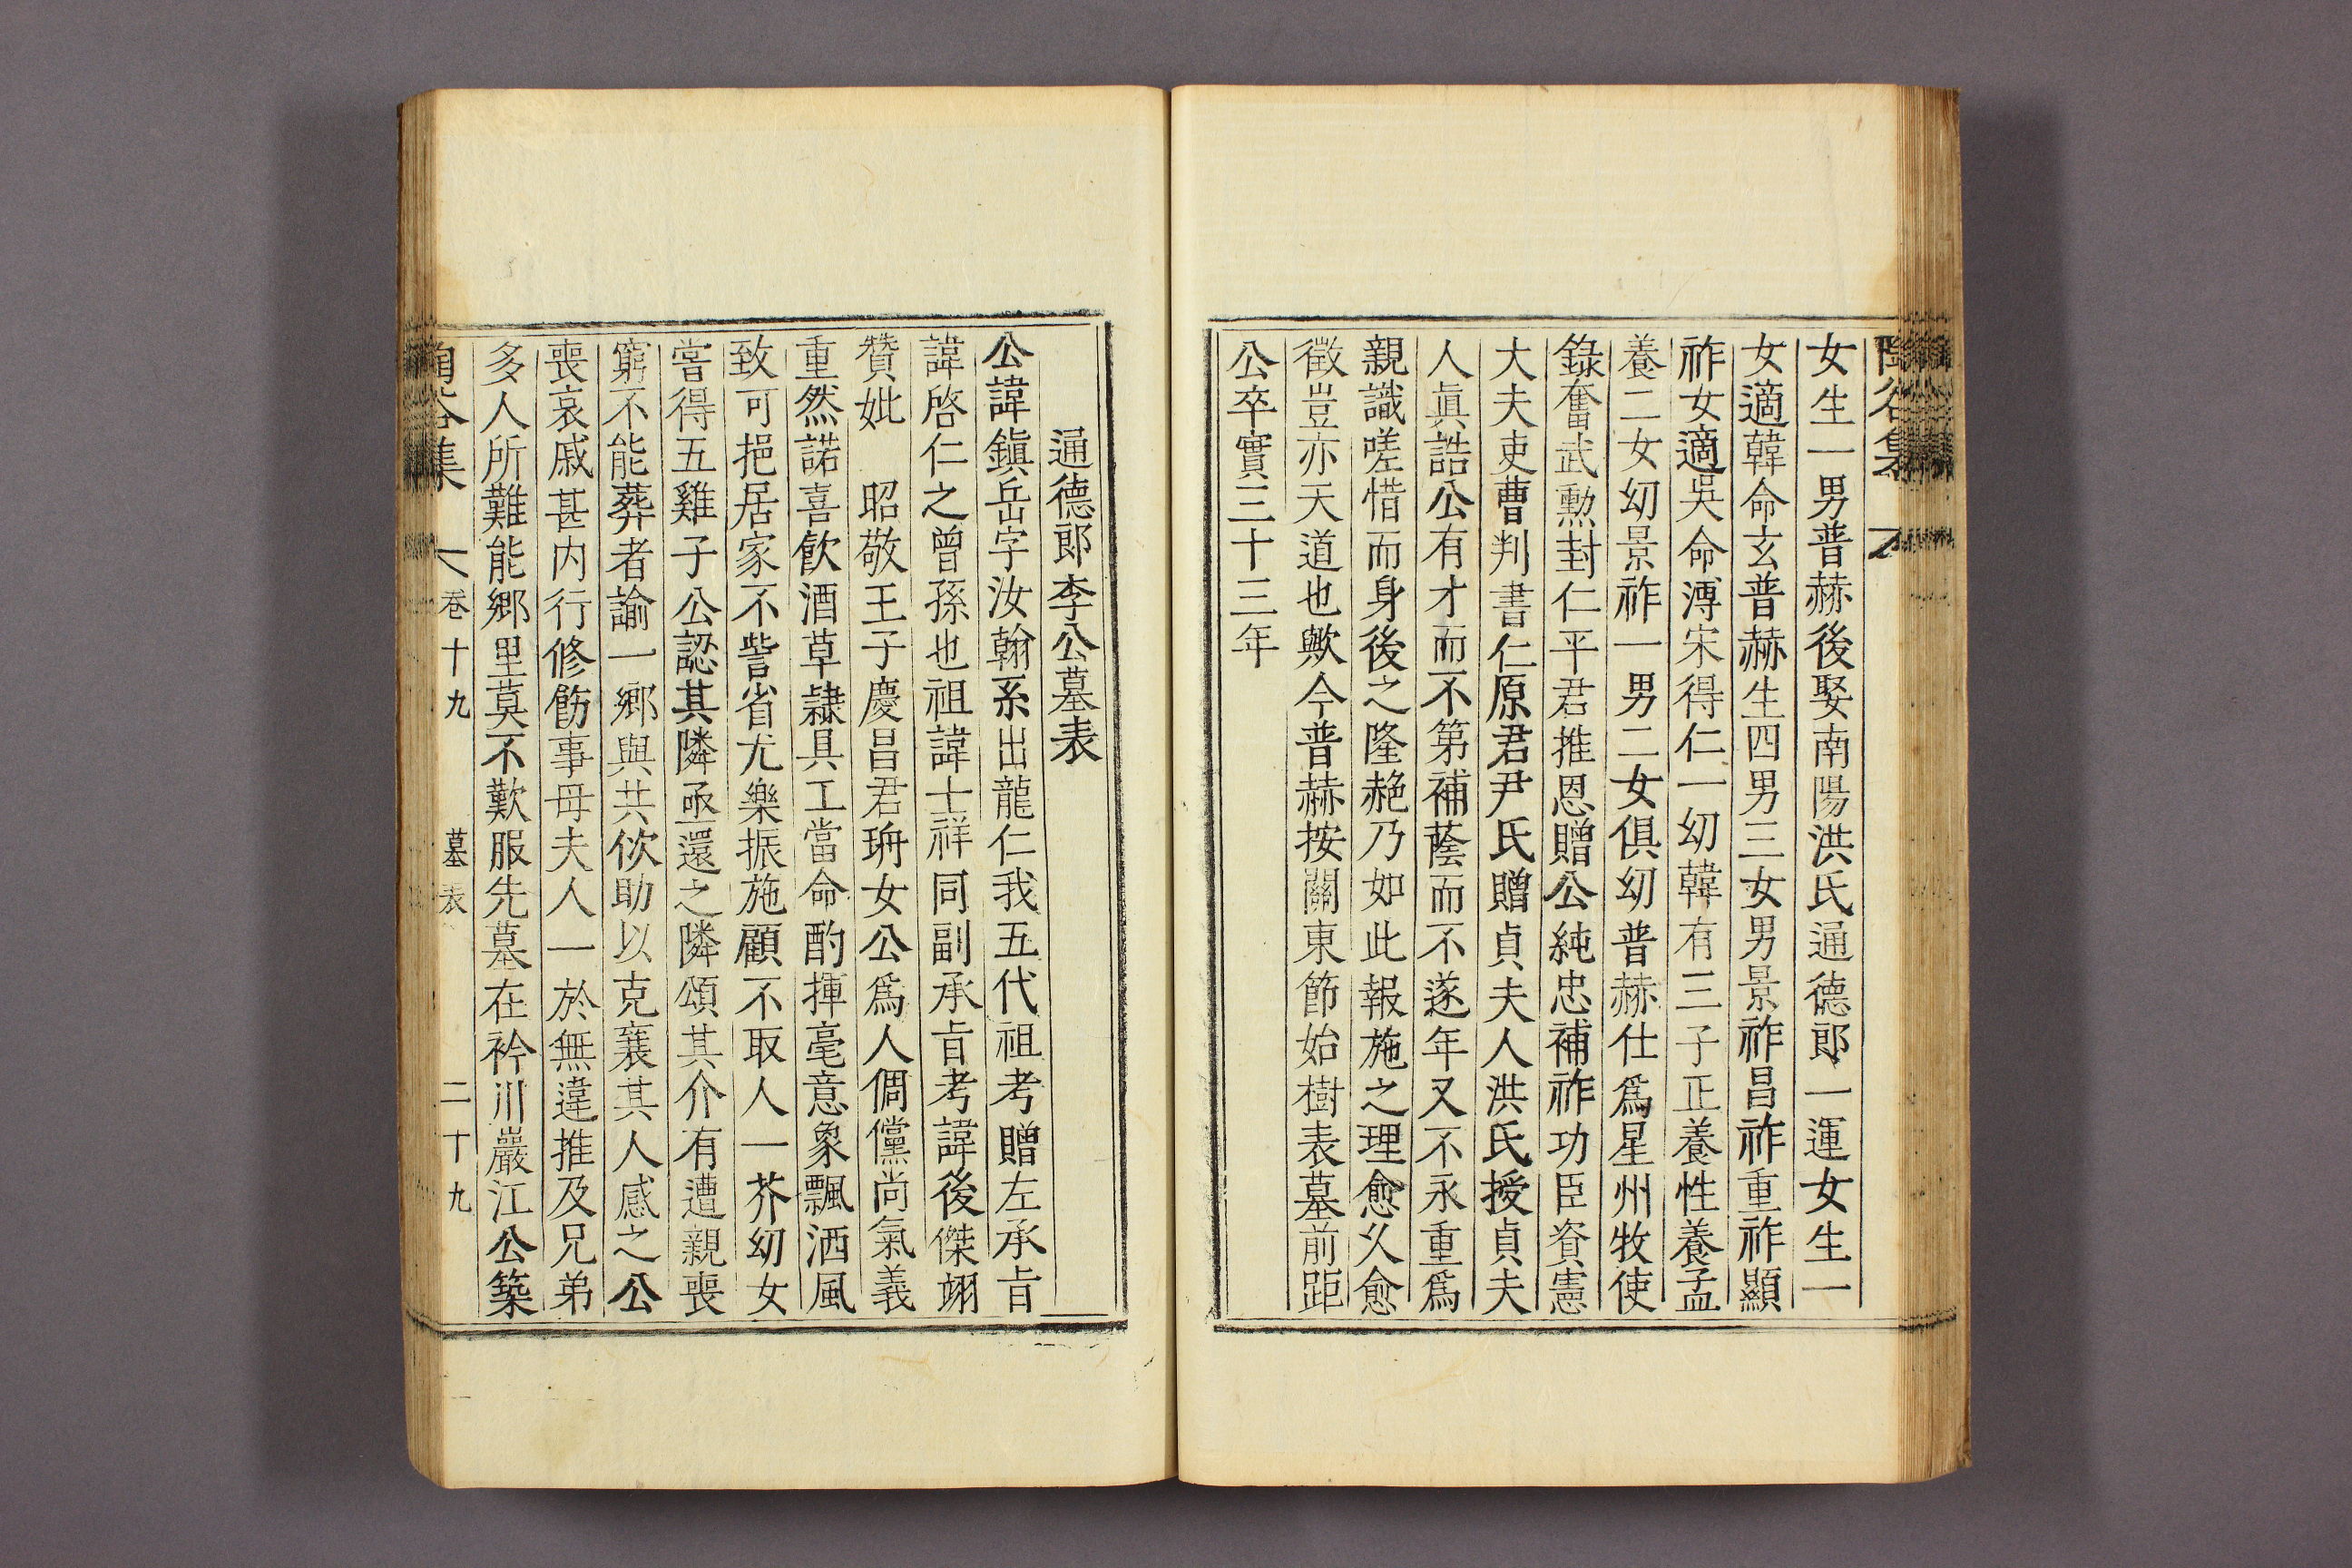 陶谷集
女生一男普赫後娶南陽洪氏通德郎一運女生一
女適韓命玄普赫生四男三女男景祚昌祚重祚顯
祚女適吳命溥宋得仁一幼韓有三子正養性養孟
養二女幼景祚一男二女俱幼普赫仕爲星州牧使
錄奮武勳封仁平君推恩贈公純忠補祚功臣資憲
大夫吏曹判書仁原君尹氏贈貞夫人洪氏授貞夫
人眞誥公有才而不第補蔭而不遂年又不永重爲
親識嗟惜而身後之隆赩乃如此報施之理愈久愈
徵豈亦天道也歟今普赫按關東節始樹表墓前距
公卒實三十三年
通德郎李公墓表
公諱鎭岳字汝翰系出龍仁我五代祖考贈左承旨
諱啓仁之曾孫也祖諱士祥同副承旨考諱後傑翊
贊妣　昭敬王子慶昌君珘女公爲人倜儻尚氣義
重然諾喜飮酒草隷具工當命酌揮毫意象飄洒風
致可挹居家不訾省尤樂振施顧不取人一芥幼女
嘗得五雞子公認其隣亟還之隣頌其介有遭親喪
窮不能葬者諭一鄉與共佽助以克襄其人感之公
喪哀戚甚内行修飭事母夫人一於無違推及兄弟
多人所難能鄉里莫不歎服先墓在衿川巖江公築
陶谷集　卷十九　墓表　二十九